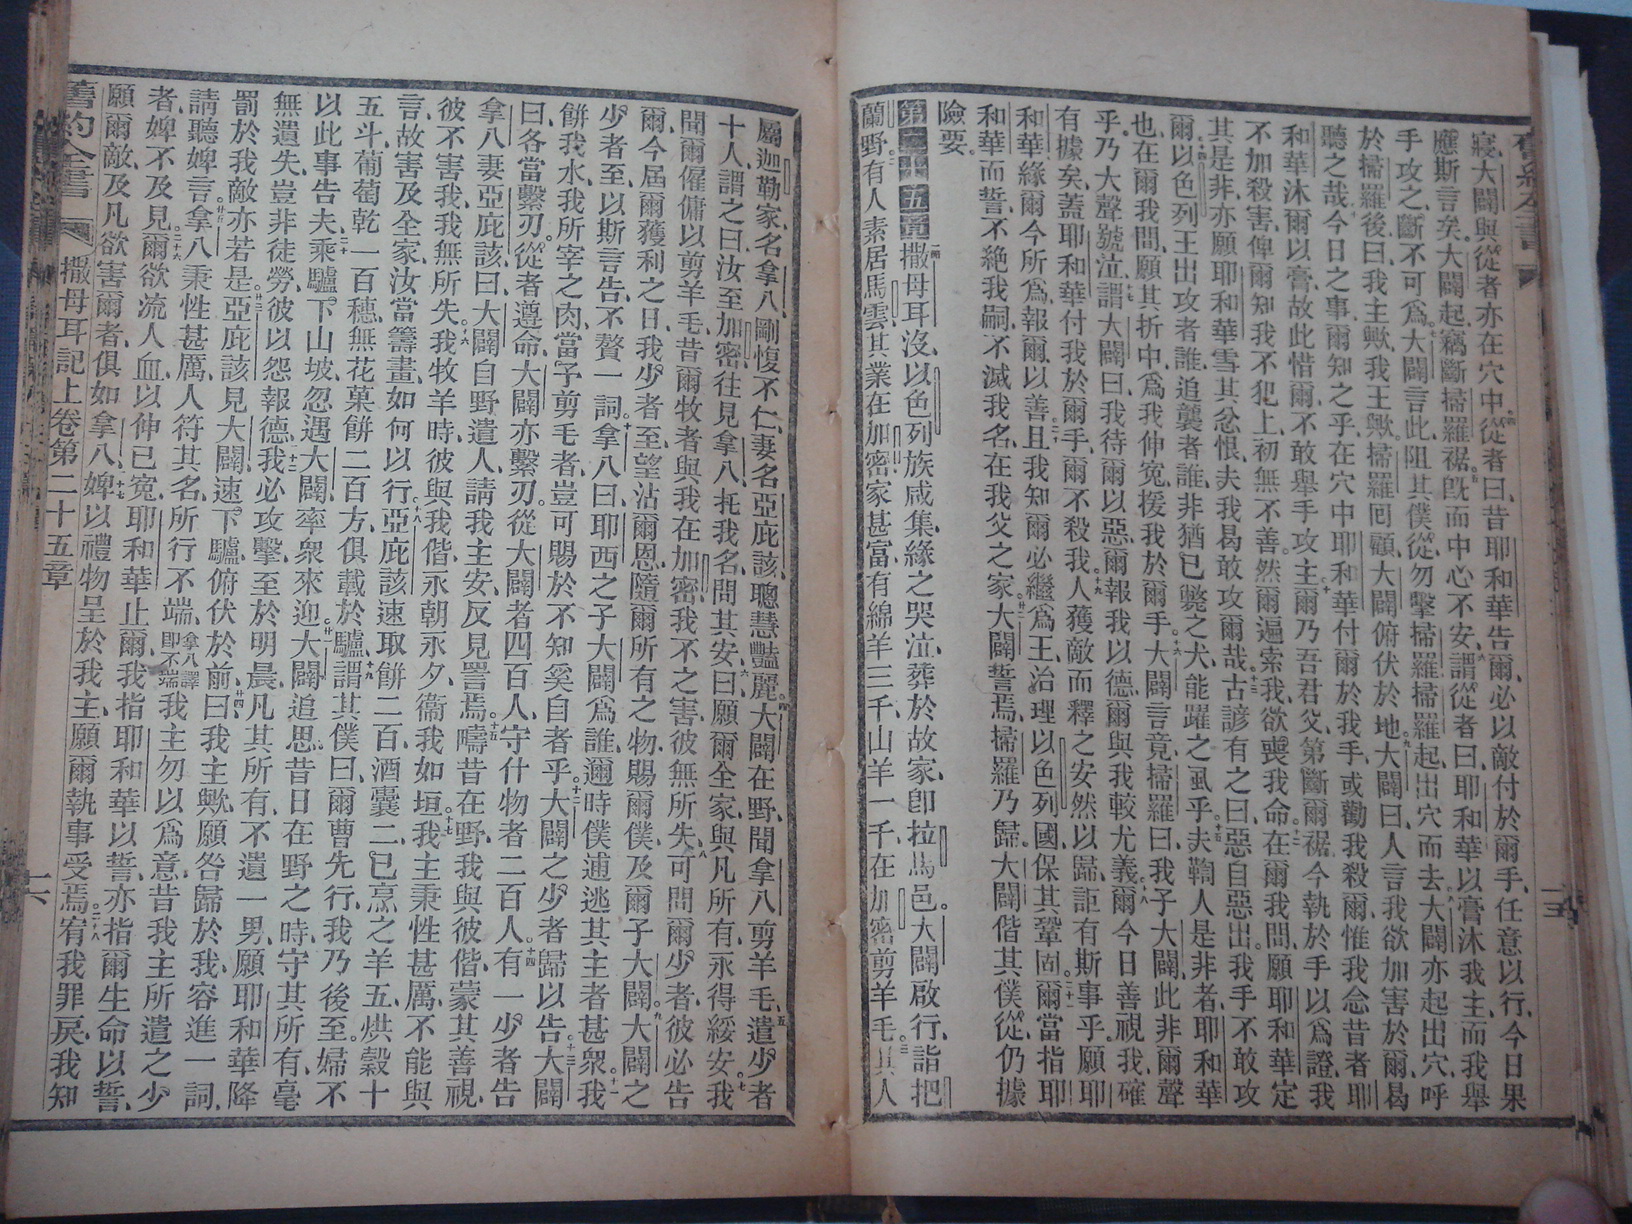 寢、大闢與從者亦在穴中、從者曰、昔耶和華告爾、必以敵付於爾手、任意以行、今日果
應斯言矣、大闢起、竊斷掃羅裾、旣而中心不安、謂從者曰、耶和華以膏沐我主、而我舉
手攻之、斷不可爲、大闢言此、阻其僕從、勿擊掃羅、掃羅起、出穴而去、大闢亦起出穴、呼
於掃羅後曰、我主歟、我王歟、掃羅囘顧、大闢俯伏於地、大闢曰、人言我欲加害於爾、曷
聽之哉、今日之事、爾知之乎、在穴中耶和華付爾於我手、或勸我殺爾、惟我念昔者耶
和華沐爾以膏、故此惜爾、不敢舉手攻主、爾乃吾君父、第斷爾裾、今執於手以爲證、我
不加殺害、俾爾知我不犯上、初無不善、然爾遍索我、欲喪我命、在爾我間、願耶和華定
其是非、亦願耶和華雪其忿恨、夫我曷敢攻爾哉、古諺有之曰、惡自惡出、我手不敢攻
爾、以色列王出攻者誰、追襲者誰、非猶已斃之犬、能躍之虱乎、夫鞫人是非者、耶和華
也、在爾我間、願其折中、爲我伸寃、援我於爾手、大闢言竟、掃羅曰、我子大闢、此非爾聲
乎、乃大聲號泣、謂大闢曰、我待爾以惡、爾報我以德、爾與我較尤義、爾今日善視我、確
有據矣、蓋耶和華付我於爾手、爾不殺我、人獲敵而釋之安然以歸、詎有斯事乎、願耶
和華緣爾今所爲、報爾以善、且我知爾必繼爲王、治理以色列國、保其鞏固、爾當指耶
和華而誓、不絶我嗣、不滅我名、在我父之家、大闢誓焉、掃羅乃歸、大闢偕其僕從、仍據
險要、
第二十五章 撒母耳沒、以色列族咸集、緣之哭泣、葬於故家、卽拉馬邑、大闢啟行、詣把
蘭野、有人素居馬雲、其業在加密、家甚富、有綿羊三千、山羊一千、在加密剪羊毛、其人
屬迦勒家、名拿八、剛愎不仁、妻名亞庇該、聰慧豔麗、大闢在野、聞拿八剪羊毛、遣少者
十人、謂之曰、汝至加密、往見拿八、托我名問其安、曰、願爾全家、與凡所有、永得綏安、我
聞爾僱傭以剪羊毛、昔爾牧者與我在加密、我不之害、彼無所失、可問爾少者、彼必告
爾、今屆爾獲利之日、我少者至、望沾爾恩、隨爾所有之物、賜爾僕、及爾子大闢、大闢之
少者至、以斯言告、不贅一詞、拿八曰、耶西之子大闢爲誰、邇時僕逋逃其主者甚衆、我
餅我水、我所宰之肉、當予剪毛者、豈可賜於不知奚自者乎、大闢之少者歸以告、大闢
曰、各當繫刃、從者遵命、大闢亦繫刃、從大闢者四百人、守什物者二百人、有一少者告
拿八妻亞庇該曰、大闢自野遣人、請我主安、反見詈焉、疇昔在野、我與彼偕、蒙其善視、
彼不害我、我無所失、我牧羊時、彼與我偕、永朝永夕、衞我如垣、我主秉性甚厲、不能與
言、故害及全家、汝當籌畫、如何以行、亞庇該速取餅二百、酒囊二、已烹之羊五、烘穀十
五斗、葡萄乾一百穗、無花菓餅二百方、俱載於驢、謂其僕曰、爾曹先行、我乃後至、婦不
以此事告夫、乘驢下山坡、忽遇大闢率衆來迎、大闢追思、昔日在野之時、守其所有、毫
無遺失、豈非徒勞、彼以怨報德、我必攻擊、至於明晨、凡其所有、不遺一男、願耶和華降
罰於我敵亦若是、亞庇該見大闢、速下驢、俯伏於前、曰、我主歟、願咎歸於我、容進一詞、
請聽婢言、拿八秉性甚厲、人符其名、所行不端、拿八譯卽不端我主勿以爲意、昔我主所遣之少
者、婢不及見、爾欲流人血、以伸已寃、耶和華止爾、我指耶和華以誓、亦指爾生命以誓、
願爾敵、及凡欲害爾者、俱如拿八、婢以禮物呈於我主、願爾執事受焉、宥我罪戾、我知
舊約全書 撒母耳記上卷第二十五章 二六